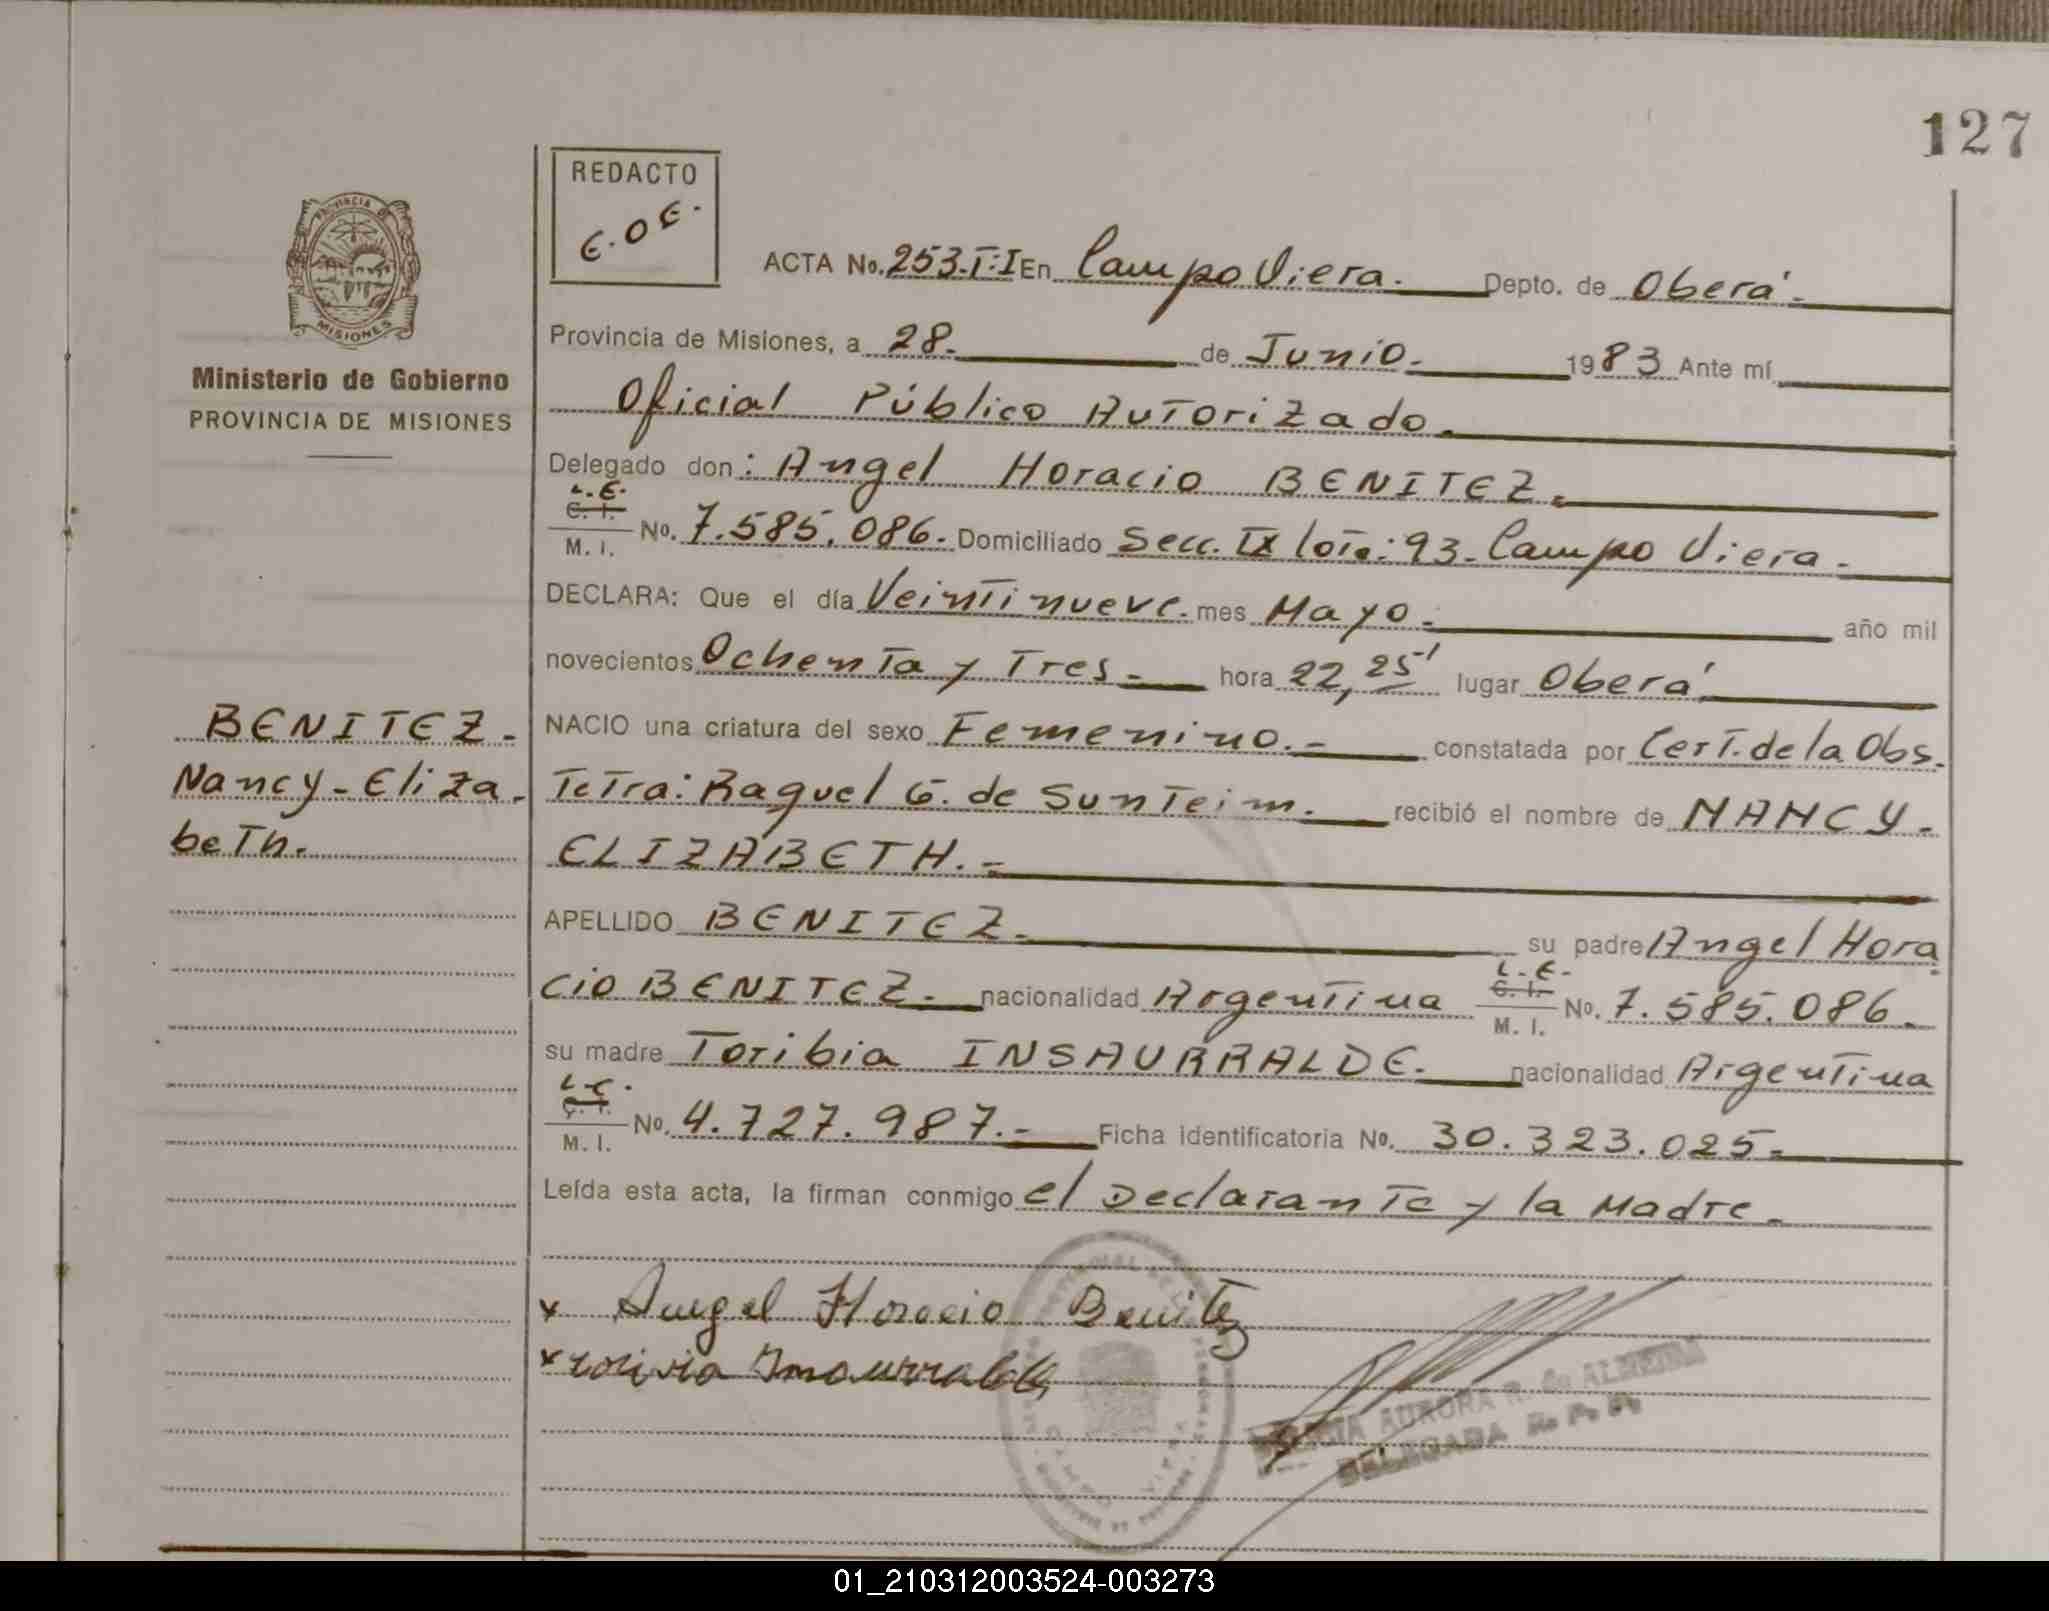 127
REDACTO
E.O.E.
PROVINCIA DE
MISIONES
Ministerio de Gobierno
PROVINCIA DE MISIONES
BENITEZ.
Nancy-Eliza.
beth.
ACTA No. 253.T:I En Campo Viera. Depto. de Oberá.
Provincia de Misiones, a 28. de Junio. 1983 Ante mí
Oficial Público Autorizado.
Delegado don: Angel Horacio BENITEZ.
L.E.
C. I.
M. I. No. 7.585.086. Domiciliado Secc. IX lote: 93. Campo Viera.
DECLARA: Que el día Veintinueve. mes Mayo. año mil
novecientos Ochenta y Tres. hora 22,25' lugar Oberá
NACIO una criatura del sexo Femenino. constatada por Cert. de la Obs.
Tetra: Raquel G. de Sunteim. recibió el nombre de NANCY.
ELIZABETH.
APELLIDO BENITEZ. su padre Angel Hora
cio BENITEZ. nacionalidad Argentina L.E. C. I. M. I. No. 7.585.086.
su madre Toribia INSAURRALDE. nacionalidad Argentina
L.C.
C. I.
M. I. No. 4.727.987. Ficha identificatoria No. 30.323.025.
Leída esta acta, la firman conmigo el Declarante y la Madre.
x Angel Horacio Benitez
x Insaurralde
AURORA R. de ALMEIRA
DELEGADA R. P. P.
01_210312003524-003273